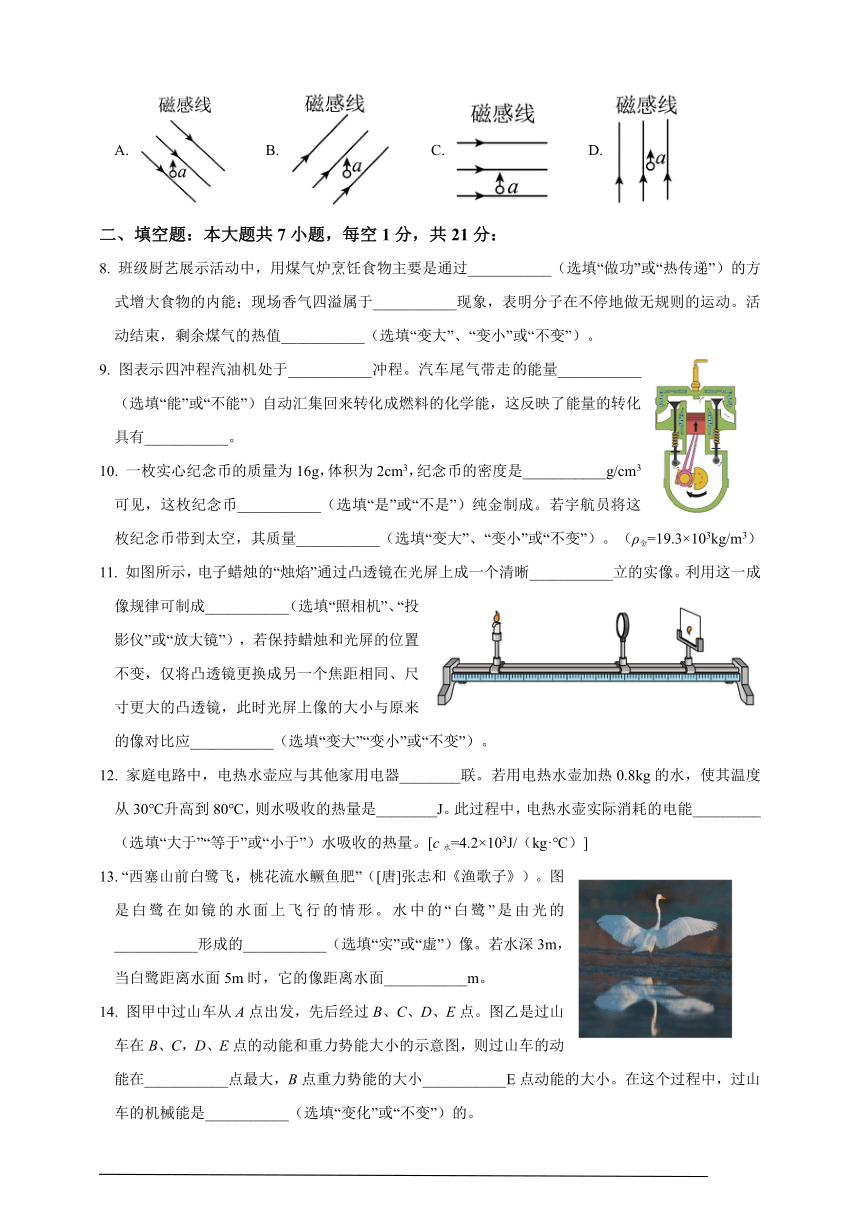 磁感线 磁感线 磁感线 磁感线
A. a B. a C. a D. a
二、填空题：本大题共7小题，每空1分，共21分：
8. 班级厨艺展示活动中，用煤气炉烹饪食物主要是通过___________（选填“做功”或“热传递”）的方
式增大食物的内能；现场香气四溢属于___________现象，表明分子在不停地做无规则的运动。活
动结束，剩余煤气的热值___________（选填“变大”、“变小”或“不变”）。
9. 图表示四冲程汽油机处于___________冲程。汽车尾气带走的能量___________
（选填“能”或“不能”）自动汇集回来转化成燃料的化学能，这反映了能量的转化
具有___________。
10. 一枚实心纪念币的质量为16g，体积为2cm³，纪念币的密度是___________g/cm³
可见，这枚纪念币___________（选填“是”或“不是”）纯金制成。若宇航员将这
枚纪念币带到太空，其质量___________（选填“变大”、“变小”或“不变”）。（ρ金=19.3×10³kg/m³）
11. 如图所示，电子蜡烛的“烛焰”通过凸透镜在光屏上成一个清晰___________立的实像。利用这一成
像规律可制成___________（选填“照相机”、“投
影仪”或“放大镜”），若保持蜡烛和光屏的位置
不变，仅将凸透镜更换成另一个焦距相同、尺
寸更大的凸透镜，此时光屏上像的大小与原来
的像对比应___________（选填“变大”“变小”或“不变”）。
12. 家庭电路中，电热水壶应与其他家用电器________联。若用电热水壶加热0.8kg的水，使其温度
从30℃升高到80℃，则水吸收的热量是________J。此过程中，电热水壶实际消耗的电能_________
（选填“大于”“等于”或“小于”）水吸收的热量。[c水=4.2×10³J/（kg·℃）]
13. “西塞山前白鹭飞，桃花流水鳜鱼肥”（[唐]张志和《渔歌子》）。图
是白鹭在如镜的水面上飞行的情形。水中的“白鹭”是由光的
___________形成的___________（选填“实”或“虚”）像。若水深3m，
当白鹭距离水面5m时，它的像距离水面___________m。
14. 图甲中过山车从A点出发，先后经过B、C、D、E点。图乙是过山
车在B、C，D、E点的动能和重力势能大小的示意图，则过山车的动
能在___________点最大，B点重力势能的大小___________E点动能的大小。在这个过程中，过山
车的机械能是___________（选填“变化”或“不变”）的。